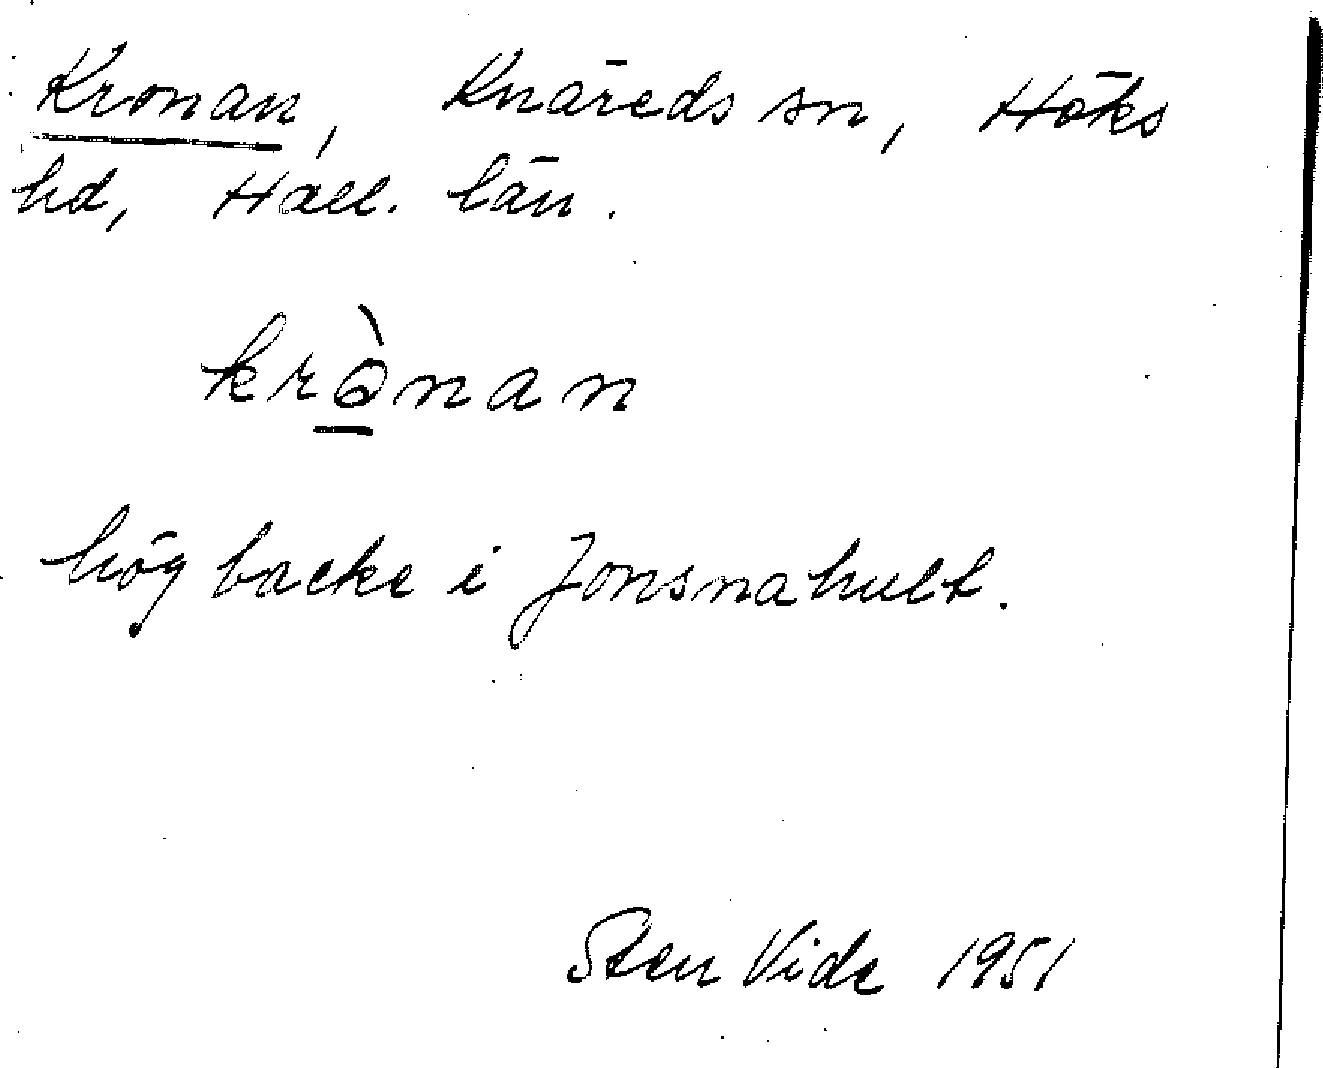 Kronan, Knäreds sn, Höks
hd, Hall. län.
krò̲nan
hög backe i Jonsnahult.
Sten Vide 1951